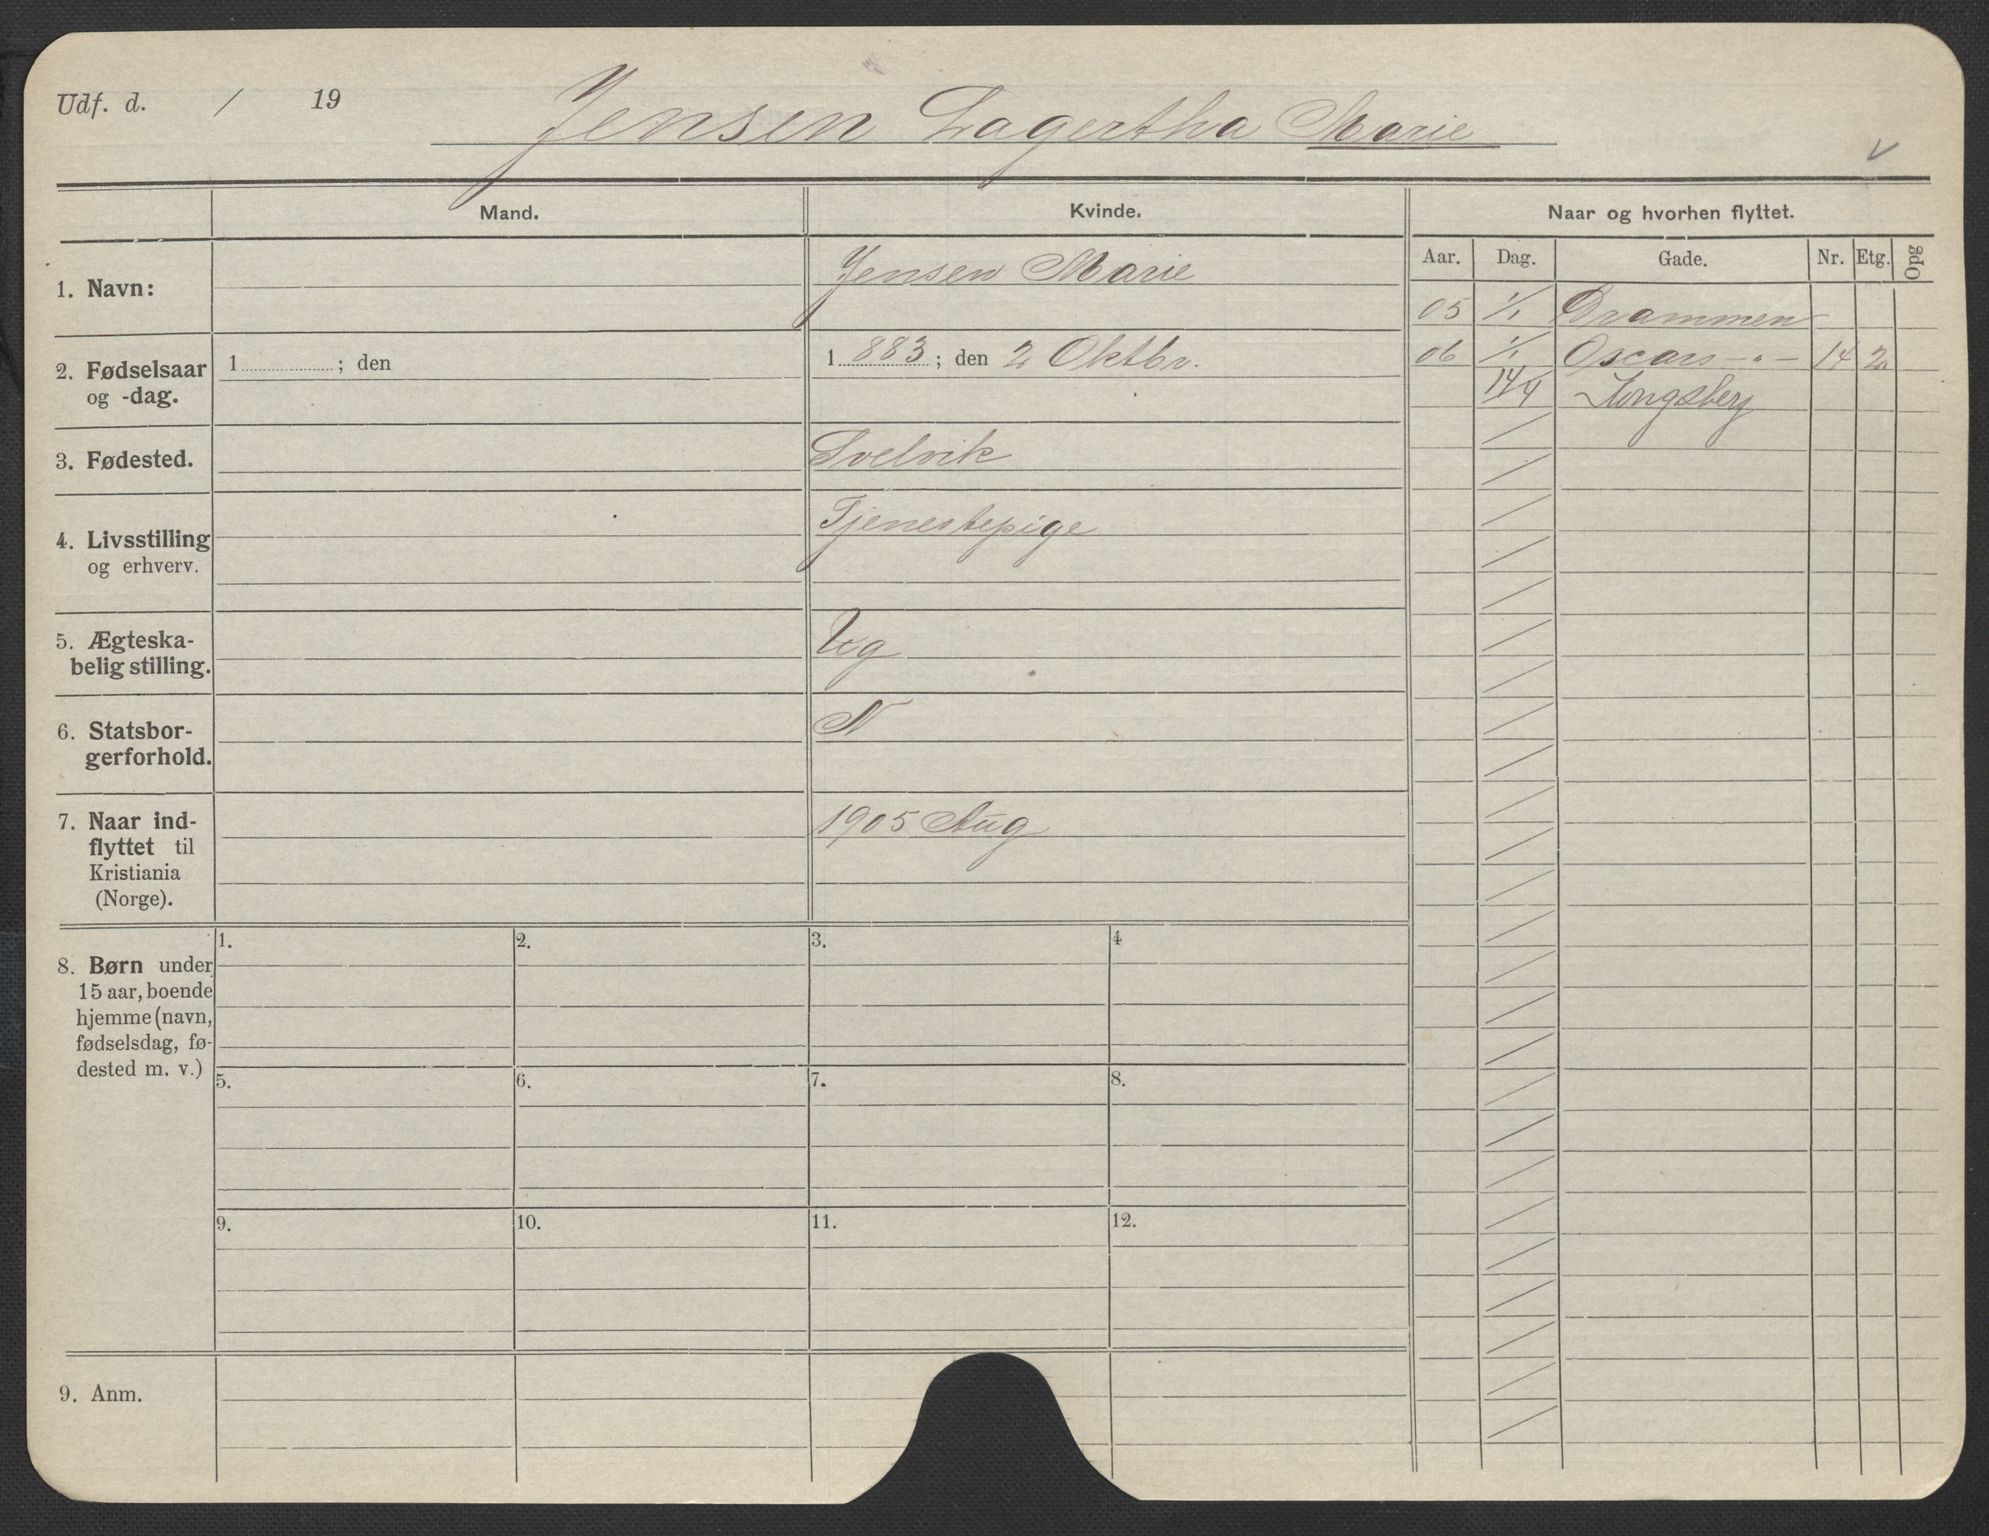 Udf. d. / 19
Jensen Lagertha Marie
v
Mand. Kvinde. Naar og hvorhen flyttet.
Aar. Dag. Gade. Nr. Etg. Opg
1. Navn: Jensen Marie
05 1/1 Drammen
2. Fødselsaar og -dag. 1 ; den 1 883 ; den 2 Oktbr.
06 1/1 Oscars -"- 14 2
14/4 Kongsberg
3. Fødested. Svelvik
4. Livsstilling og erhverv. Tjenestepige
5. Ægteska-
belig stilling. Ug
6. Statsbor-
gerforhold. N
7. Naar ind-
flyttet til
Kristiania
(Norge). 1905 Aug
8. Børn under
15 aar, boende
hjemme (navn,
fødselsdag, fø-
dested m. v.)
1. 2. 3. 4
5. 6. 7. 8.
9. 10. 11. 12.
9. Anm.